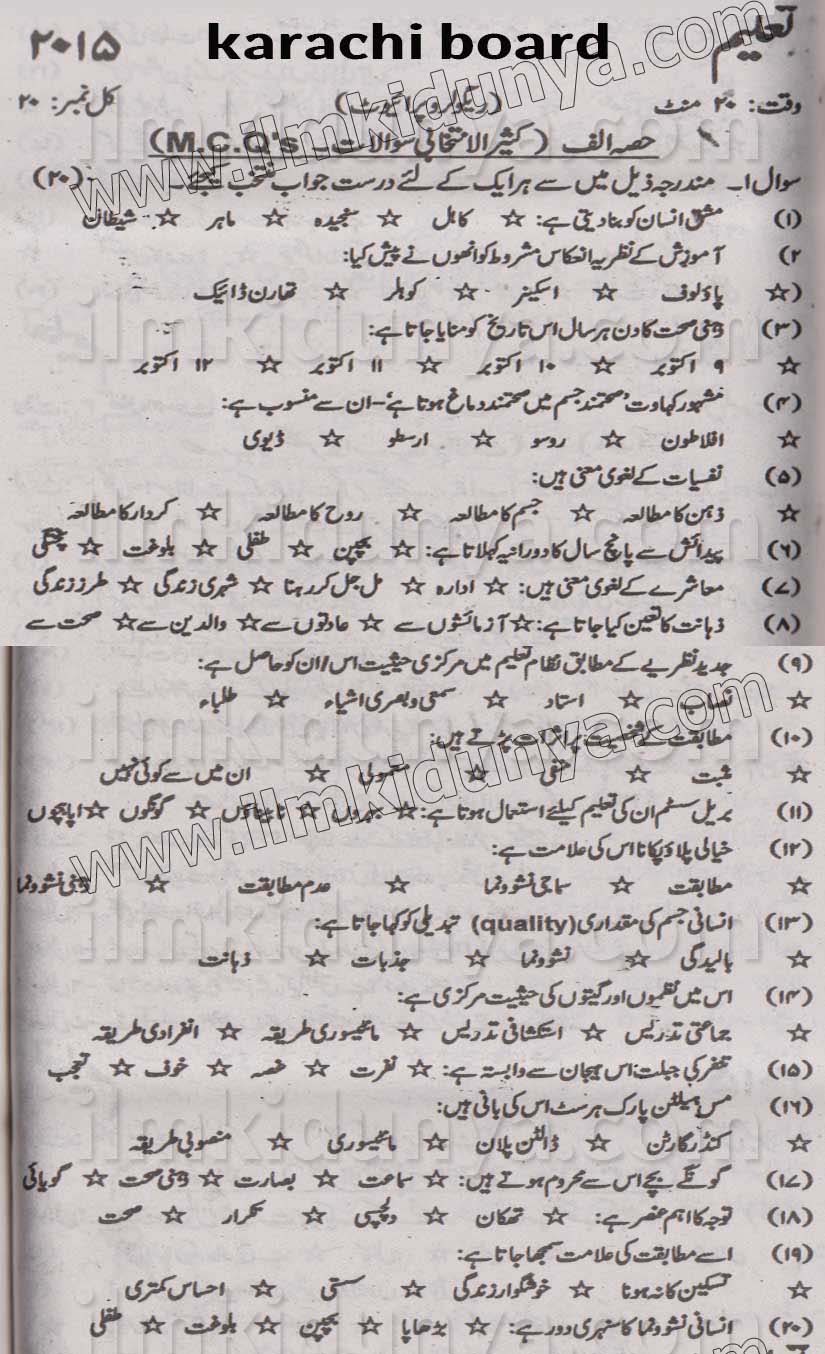 تعلیم karachi board ۲۰۱۵
وقت: ۲۰ منٹ (ریگولر و پرائیوٹ) کل نمبر: ۲۰
حصہ الف (کثیر الامتحانی سوالات - M.C.Q's)
سوال ۱۔ مندرجہ ذیل میں سے ہر ایک کے لئے درست جواب منتخب کیجئے۔ (۲۰)
(۱) مشق انسان کو بنا دیتی ہے: ☆ کاہل ☆ سنجیدہ ☆ ماہر ☆ شیطان
۲) آموزش کے نظریہ انعکاس مشروط کو انھوں نے پیش کیا:
(☆ پاؤلوف ☆ اسکینر ☆ کوہلر ☆ تھارن ڈائیک
(۳) ذہنی صحت کا دن ہر سال اس تاریخ کو منایا جاتا ہے:
☆ ۹ اکتوبر ☆ ۱۰ اکتوبر ☆ ۱۱ اکتوبر ☆ ۱۲ اکتوبر
(۴) مشہور کہاوت 'صحتمند جسم میں صحتمند دماغ ہوتا ہے' - ان سے منسوب ہے:
☆ افلاطون ☆ روسو ☆ ارسطو ☆ ڈیوی
(۵) نفسیات کے لغوی معنی ہیں:
☆ ذہن کا مطالعہ ☆ جسم کا مطالعہ ☆ روح کا مطالعہ ☆ کردار کا مطالعہ
(۶) پیدائش سے پانچ سال کا دورانیہ کہلاتا ہے: ☆ بچپن ☆ طفلی ☆ بلوغت ☆ پختگی
(۷) معاشرے کے لغوی معنی ہیں: ☆ ادارہ ☆ مل جل کر رہنا ☆ شہری زندگی ☆ طرز زندگی
(۸) ذہانت کا تعین کیا جاتا ہے: ☆ آزمائشوں سے ☆ عادتوں سے ☆ والدین سے ☆ صحت سے
(۹) جدید نظریے کے مطابق نظام تعلیم میں مرکزی حیثیت اس/ان کو حاصل ہے:
☆ نصاب ☆ استاد ☆ سمعی و بصری اشیاء ☆ طلباء
(۱۰) مطابقت کے شخصیت پر اثرات پڑتے ہیں:
☆ مثبت ☆ منفی ☆ معمولی ☆ ان میں سے کوئی نہیں
(۱۱) بریل سسٹم ان کی تعلیم کیلئے استعمال ہوتا ہے: ☆ بہروں ☆ نابیناؤں ☆ گونگوں ☆ اپاہجوں
(۱۲) خیالی پلاؤ پکانا اس کی علامت ہے:
☆ مطابقت ☆ سماجی نشوونما ☆ عدم مطابقت ☆ ذہنی نشوونما
(۱۳) انسانی جسم کی مقداری (quality) تبدیلی کو کہا جاتا ہے:
☆ بالیدگی ☆ نشوونما ☆ جذبات ☆ ذہانت
(۱۴) اس میں نظموں اور گیتوں کی حیثیت مرکزی ہے:
☆ جماعتی تدریس ☆ استکشافی تدریس ☆ مانٹیسوری طریقہ ☆ انفرادی طریقہ
(۱۵) تنفر کی جبلت اس ہیجان سے وابستہ ہے: ☆ نفرت ☆ غصہ ☆ خوف ☆ تعجب
(۱۶) مس ہیلٹن پارک ہرسٹ اس کی بانی ہیں:
☆ کنڈر گارٹن ☆ ڈالٹن پلان ☆ مانٹیسوری ☆ منصوبی طریقہ
(۱۷) گونگے بچے اس سے محروم ہوتے ہیں: ☆ سماعت ☆ بصارت ☆ ذہنی صحت ☆ گویائی
(۱۸) توجہ کا اہم عنصر ہے: ☆ تھکان ☆ دلچسپی ☆ تکرار ☆ صحت
(۱۹) اسے مطابقت کی علامت سمجھا جاتا ہے:
☆ تسکین کا نہ ہونا ☆ خوشگوار زندگی ☆ سستی ☆ احساس کمتری
(۲۰) انسانی نشوونما کا سنہری دور ہے: ☆ بڑھاپا ☆ بچپن ☆ بلوغت ☆ طفلی
www.ilmkidunya.com
www.ilmkidunya.com
ilmkidunya.com
ilmkidunya.com
ilmkidunya.com
ilmkidunya.com
ilmkidunya.com
ilmkidunya.com